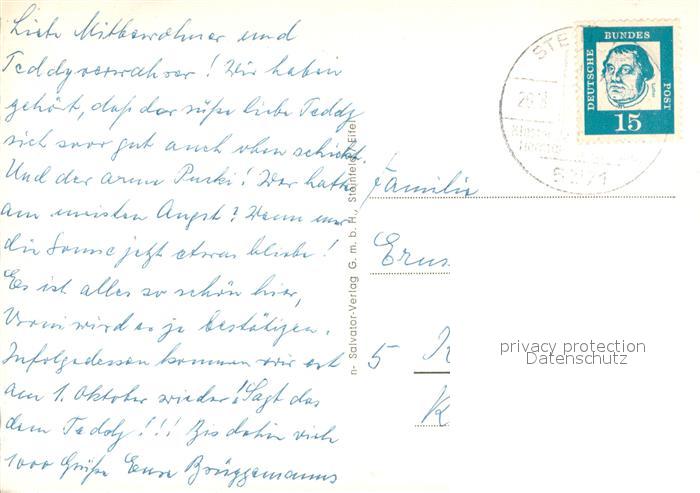 Liebe Mitbewohner und
Teddyverwahrer! Wir haben
gehört, daß der süße liebe Teddy
sich sooo gut auch oben schickt.
Und der arme Purki! Wer hatte
am meisten Angst? Wenn nur
die Sonne jetzt etwas bliebe!
Es ist alles so schön hier,
Vroni wird es ja bestätigen.
Infolgedessen kommen wir erst
am 1. Oktober wieder! Sagt das
dem Teddy!!! Bis dahin viele
1000 Grüße Eure Brüggemanns
n- Salvator-Verlag G.m.b.H., Steinfeld/Eifel
STE
DEUTSCHE BUNDES POST
Luther
15
5371
Familie
Erns
5 K
K
privacy protection
Datenschutz